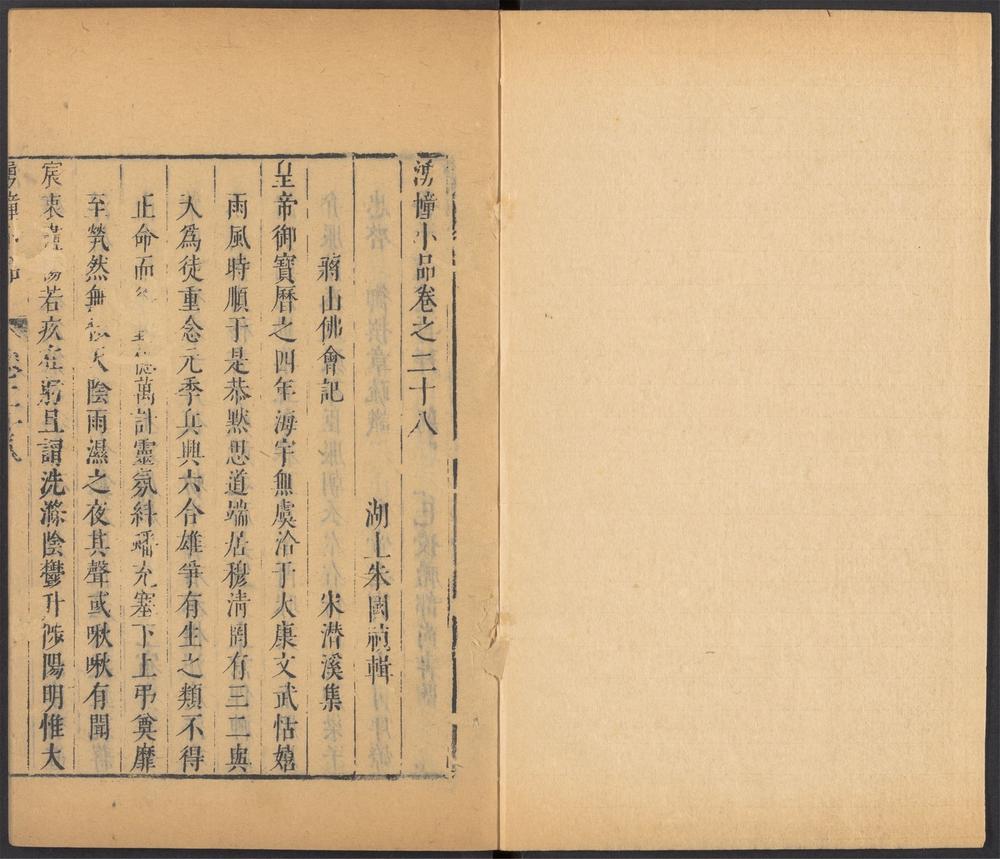 湧幢小品卷之二十八
湖上朱國禎輯
蔣山佛會記 宋潛溪集
皇帝御寶曆之四年海宇無虞洽于大康文武恬嬉
雨風時順于是恭默思道端居穆清罔有三二與
天為徒重念元季兵興六合雄爭有生之類不得
正命而 億萬計靈氛糾蟠充塞下上弔奠靡
至煢然無 天陰雨濕之夜其聲或啾啾有聞
宸衷 若疚在躬且謂洗滌陰鬱升陟陽明惟大